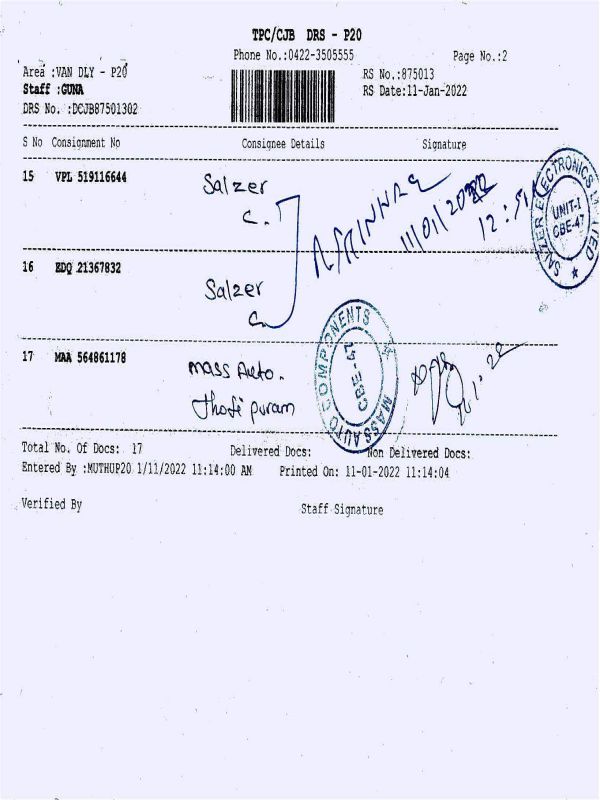 TPC/CJB DRS - P20
Phone No.:0422-3505555 Page No.:2
Area :VAN DLY - P20 RS No.:875013
Staff :GUNA RS Date:11-Jan-2022
DRS No. :DCJB87501302
S No Consignment No Consignee Details Signature
15 VPL 519116644 Salzer
C.
11/01/2022
SALZER ELECTRONICS LIMITED
UNIT-I
CBE-47
16 EDQ 21367832 Salzer
C
17 MAA 564861178 Mass Auto.
puram
MASS AUTO COMPONENTS
CBE-47
Total No. Of Docs: 17 Delivered Docs: Non Delivered Docs:
Entered By :MUTHUP20 1/11/2022 11:14:00 AM Printed On: 11-01-2022 11:14:04
Verified By Staff Signature